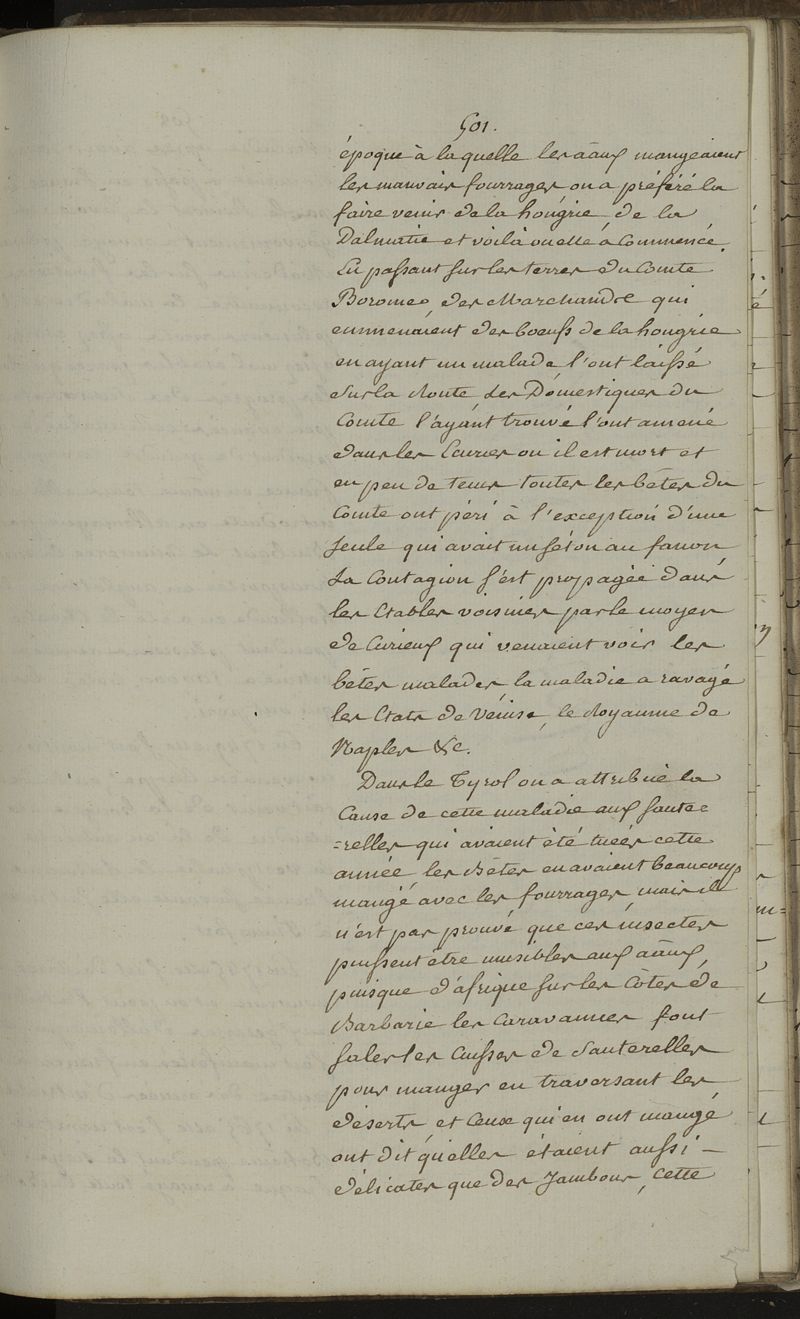 501.
époque à laquelle les aãux mangeaient
les mauvais fourrages on a préféré la
faire venir de la hongrie de la
Dalmatie et voilà ou elle à Commencé.
En passant sur les terres du Comte
Boromeo des Marchands qui
emmenaient des boeufs de la hongrie
en ayant un malade l'ont laissé
sur la Route des Domestiques du
Comte l'ayant trouvé l'ont amené
dans les Ecuries ou il est mort et
en peu de tems toutes les bêtes du
Comte ont péri à l'exception d'une
seule qui avait un séton au fanon
La Contagion s'est propagée dans
les Etables voisines par le moyen
de Curieux qui venaient voir les
bêtes malades la maladie a ravagé
les Etats de Venise, le Royaume de
Naples &c.
Dans le Tyrol on a attribué la
Cause de cette maladie aux saute=
=relles qui avaient été tuées cette
année les Bêtes en avaient beaucoup
mangé avec les fourrages, mais il
n'est pas prouvé que ces insectes
puissent être nuisibles aux aãux,
puisque d'afrique sur les Côtes de
Barbarie les Caravannes font
saler les Cuisses de Sauterelles
pour manger en traversant les
déserts et Ceux qui en ont mangé
ont dit qu'elles étaient aussi —
délicates que des Jambons, cette